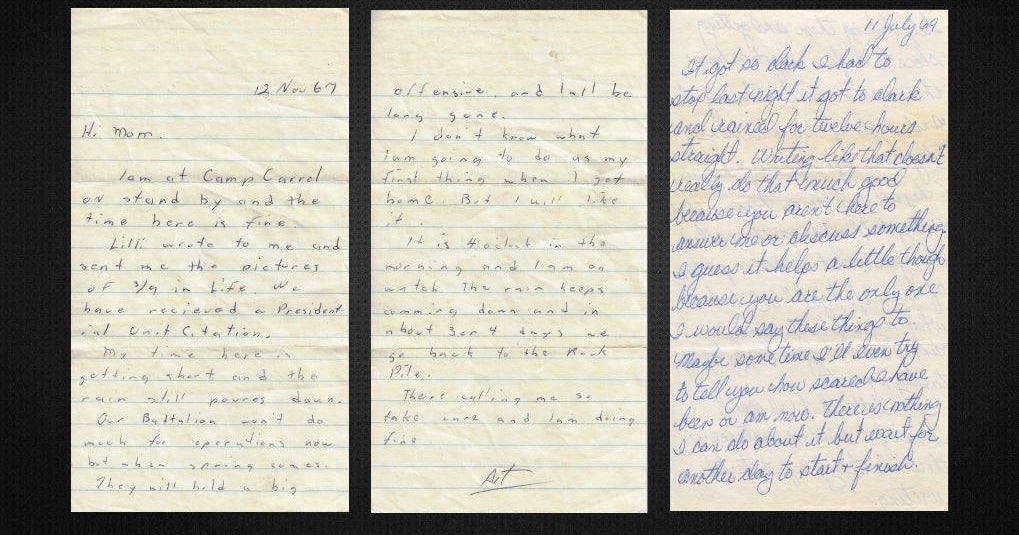 12 Nov 67
Hi Mom.
Iam at Camp Carrol
on stand by and the
time here is fine.
Lilli wrote to me and
sent me the pictures
of 3/9 in Life. We
have recieved a President-
ial Unit Citation.
My time here is
getting short and the
rain still poures down.
Our Battalion won't do
much for operations now
but when spring comes.
They will hold a big
offensive. and I all be
long gone.
I don't know what
iam going to do as my
first thing when I get
home. But I will like
it.
It is 4 oclock in the
morning and I am on
watch The rain keeps
comming down and in
about 3 or 4 days we
go back to the Rock
Pile.
There calling me so
take care and Iam doing
fine
Art
11 July 69.
It got so dark I had to
stop last night it got to dark
and rained for twelve hours
straight. Writing like that doesn't
really do that much good
because you aren't here to
answer me or discuss something.
I guess it helps a little though
because you are the only one
I would say these things to.
Maybe sometime I'll even try
to tell you how scared I have
been or am now. There is nothing
I can do about it but wait for
another day to start + finish.